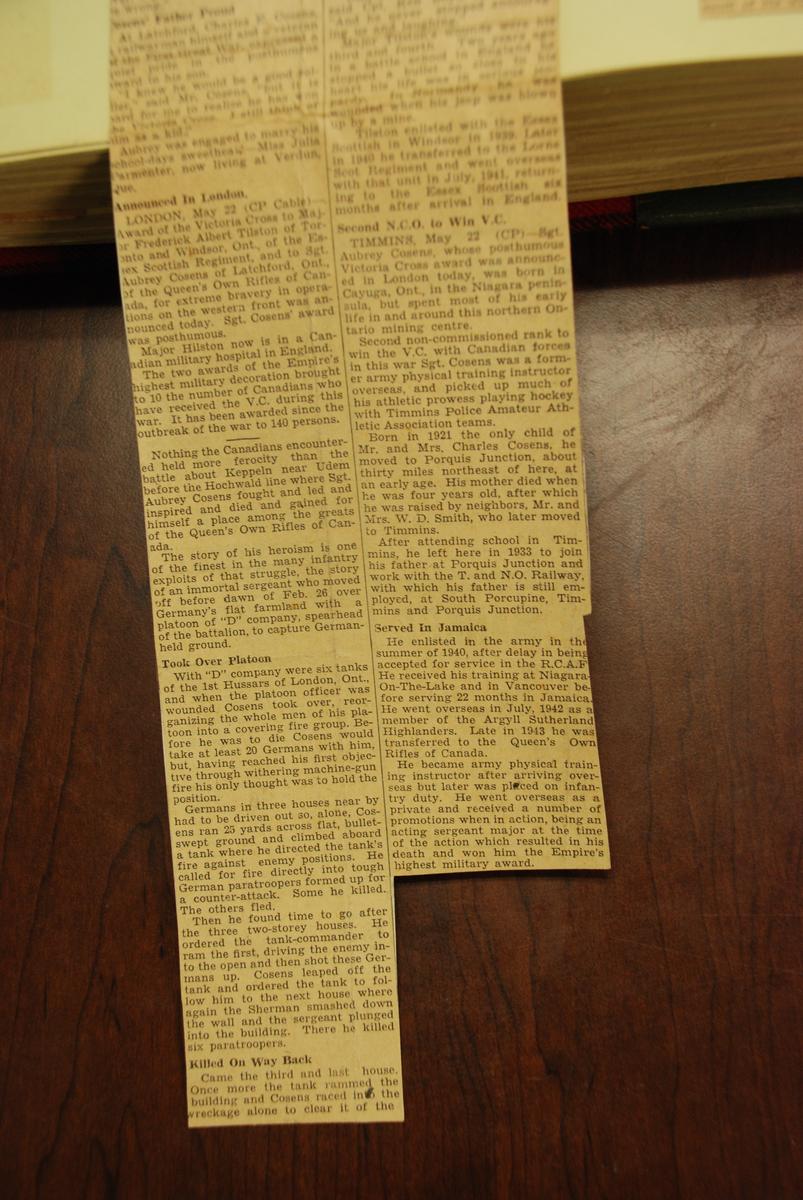 At Latchford, Charles P. Cosens,
of the First Great War, expressed a
quiet pride in the posthumous
"I knew he would be a good sol-
said Mr. Cosens,
him as a kid."
Aubrey was engaged to marry his
school-days sweetheart, Miss Julia
now living at Verdun,
Que.
Announced In London.
LONDON, May 22 (CP Cable)—
Award of the Victoria Cross to Maj-
or Frederick Albert Tilston of Tor-
onto and Windsor, Ont., of the Es-
sex Scottish Regiment, and to Sgt.
Aubrey Cosens of Latchford, Ont.,
of the Queen's Own Rifles of Can-
ada, for extreme bravery in opera-
tions on the western front was an-
nounced today. Sgt. Cosens' award
was posthumous.
Major Hilston now is in a Can-
adian military hospital in England.
The two awards of the Empire's
highest military decoration brought
to 10 the number of Canadians who
have received the V.C. during this
war. It has been awarded since the
outbreak of the war to 140 persons.
Nothing the Canadians encounter-
ed held more ferocity than the
battle about Keppeln near Udem
before the Hochwald line where Sgt.
Aubrey Cosens fought and led and
inspired and died and gained for
himself a place among the greats
of the Queen's Own Rifles of Can-
ada.
The story of his heroism is one
of the finest in the many infantry
exploits of that struggle, the story
of an immortal sergeant who moved
off before dawn of Feb. 26 over
Germany's flat farmland with a
platoon of "D" company, spearhead
of the battalion, to capture German-
held ground.
Took Over Platoon
With "D" company were six tanks
of the 1st Hussars of London, Ont.,
and when the platoon officer was
wounded Cosens took over, reor-
ganizing the whole men of his pla-
toon into a covering fire group. Be-
fore he was to die Cosens would
take at least 20 Germans with him,
but, having reached his first objec-
tive through withering machine-gun
fire his only thought was to hold the
position.
Germans in three houses near by
had to be driven out so, alone, Cos-
ens ran 25 yards across flat, bullet-
swept ground and climbed aboard
a tank where he directed the tank's
fire against enemy positions. He
called for fire directly into tough
German paratroopers formed up for
a counter-attack. Some he killed.
The others fled.
Then he found time to go after
the three two-storey houses. He
ordered the tank-commander to
ram the first, driving the enemy in-
to the open and then shot these Ger-
mans up. Cosens leaped off the
tank and ordered the tank to fol-
low him to the next house where
again the Sherman smashed down
the wall and the sergeant plunged
into the building. There he killed
six paratroopers.
Killed On Way Back
Came the third and last house.
Once more the tank rammed the
building and Cosens raced into the
wreckage alone to clear it of the
ing us and laughing.
Major Tilston's wounds were his
third and fourth. Two years ago
in a battle school in England he
stopped a bullet so close to his
heart his life was in serious
In Normandy he was
wounded when his jeep was blown
up by a mine.
Tilston enlisted with the Essex
Scottish in Windsor in 1939. Later
in 1940 he transferred to the Lorne
Scot Regiment and went overseas
with that unit in July, 1941, return-
ing to the Essex Scottish six
months after arrival in England.
Second N.C.O. to Win V.C.
TIMMINS, May 22 (CP)—Sgt.
Aubrey Cosens, whose posthumous
Victoria Cross award was announc-
ed in London today, was born in
Cayuga, Ont., in the Niagara penin-
sula, but spent most of his early
life in and around this northern On-
tario mining centre.
Second non-commissioned rank to
win the V.C. with Canadian forces
in this war Sgt. Cosens was a form-
er army physical training instructor
overseas, and picked up much of
his athletic prowess playing hockey
with Timmins Police Amateur Ath-
letic Association teams.
Born in 1921 the only child of
Mr. and Mrs. Charles Cosens, he
moved to Porquis Junction, about
thirty miles northeast of here, at
an early age. His mother died when
he was four years old, after which
he was raised by neighbors, Mr. and
Mrs. W. D. Smith, who later moved
to Timmins.
After attending school in Tim-
mins, he left here in 1933 to join
his father at Porquis Junction and
work with the T. and N.O. Railway,
with which his father is still em-
ployed, at South Porcupine, Tim-
mins and Porquis Junction.
Served In Jamaica
He enlisted in the army in the
summer of 1940, after delay in being
accepted for service in the R.C.A.F
He received his training at Niagara-
On-The-Lake and in Vancouver be-
fore serving 22 months in Jamaica.
He went overseas in July, 1942 as a
member of the Argyll Sutherland
Highlanders. Late in 1943 he was
transferred to the Queen's Own
Rifles of Canada.
He became army physical train-
ing instructor after arriving over-
seas but later was placed on infan-
try duty. He went overseas as a
private and received a number of
promotions when in action, being an
acting sergeant major at the time
of the action which resulted in his
death and won him the Empire's
highest military award.